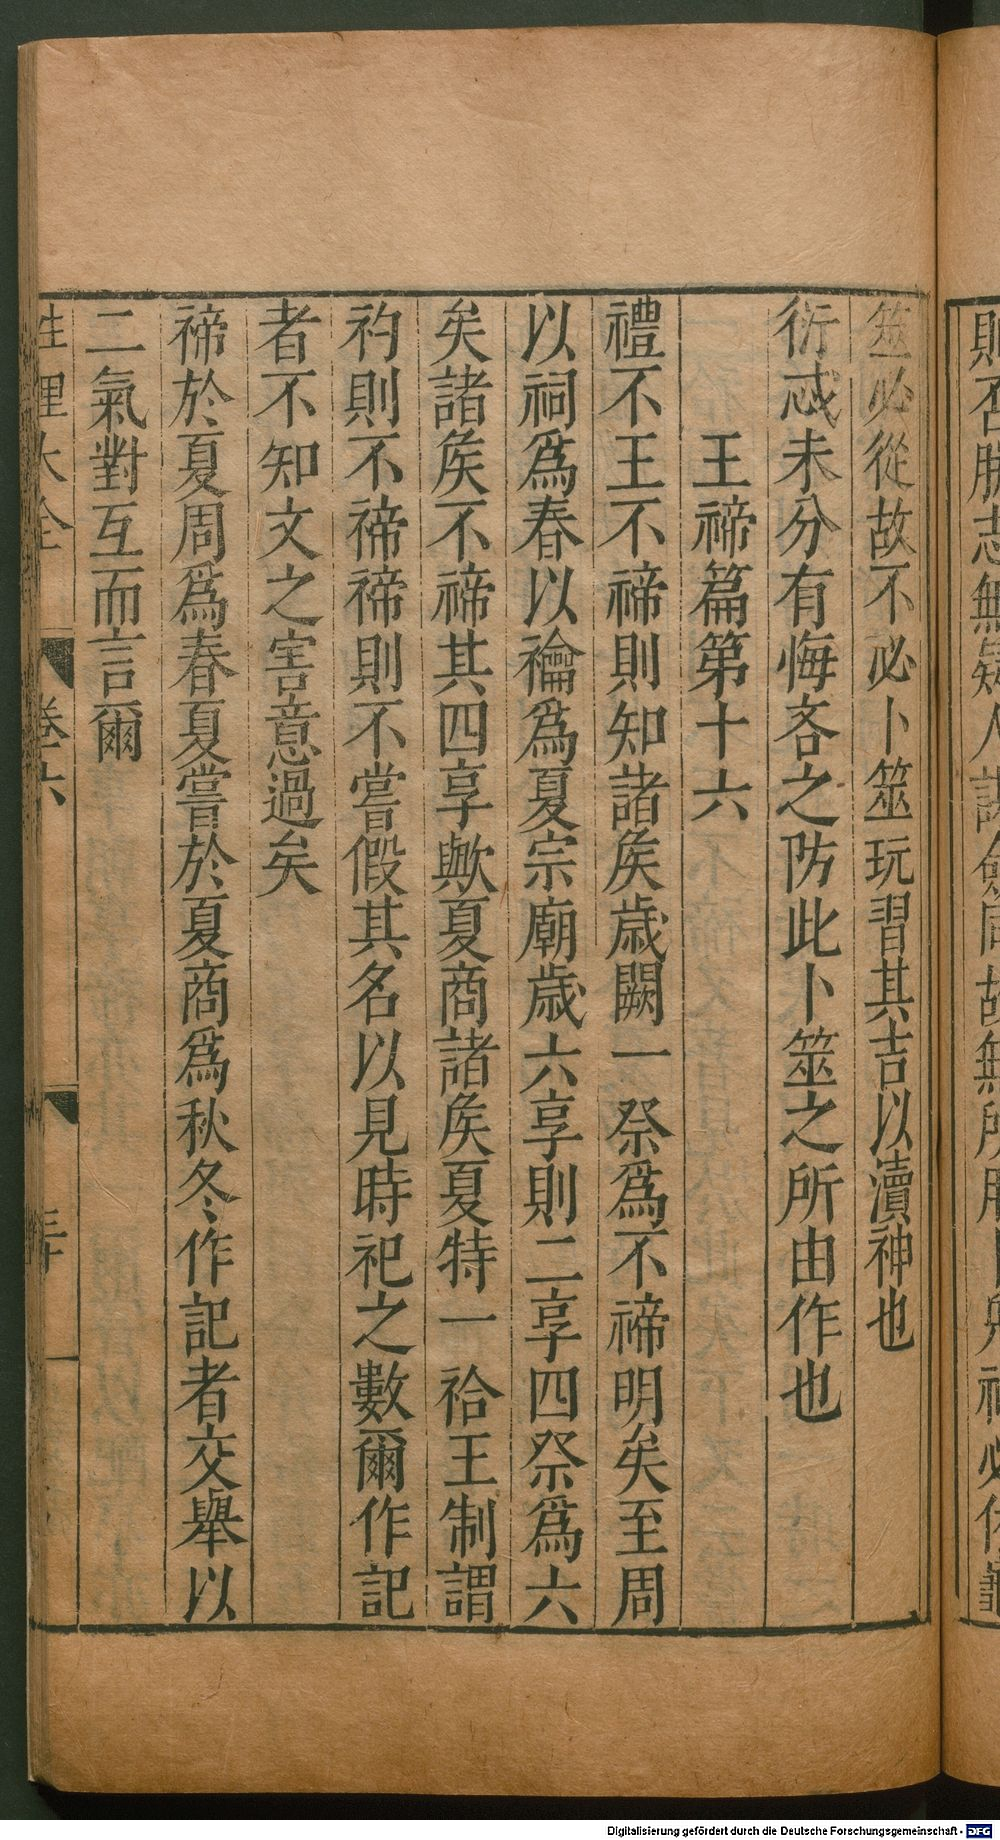 則不
筮必從故不必卜筮玩習其吉以瀆神也
衍忒未分有悔吝之防此卜筮之所由作也
王禘篇第十六
禮不王不禘則知諸矦歳闕一祭爲不禘明矣至周
以祠爲春以禴爲夏宗廟歳六享則二享四祭爲六
矣諸矦不禘其四享歟夏商諸矦夏特一祫王制謂
礿則不禘禘則不嘗假其名以見時祀之數爾作記
者不知文之害意過矣
禘於夏周爲春夏嘗於夏商爲秋冬作記者交舉以
二氣對互而言爾
性理大全 卷六 三十
Digitalisierung gefördert durch die Deutsche Forschungsgemeinschaft - DFG